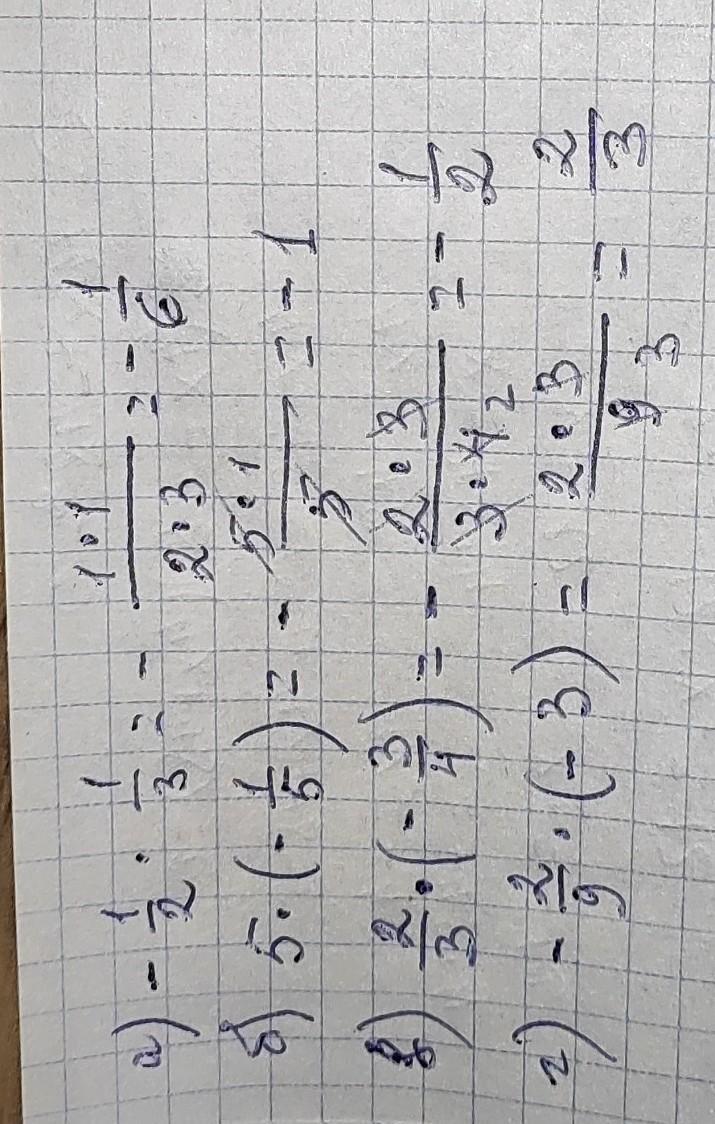 а) - 1/2 · 1/3 = - 1·1/2·3 = - 1/6
б) 5 · (- 1/5) = - 5·1/5 = - 1
в) 2/3 · (- 3/4) = - 2·3/3·4 2 = - 1/2
г) - 2/9 · (- 3) = 2·3/9 3 = 2/3